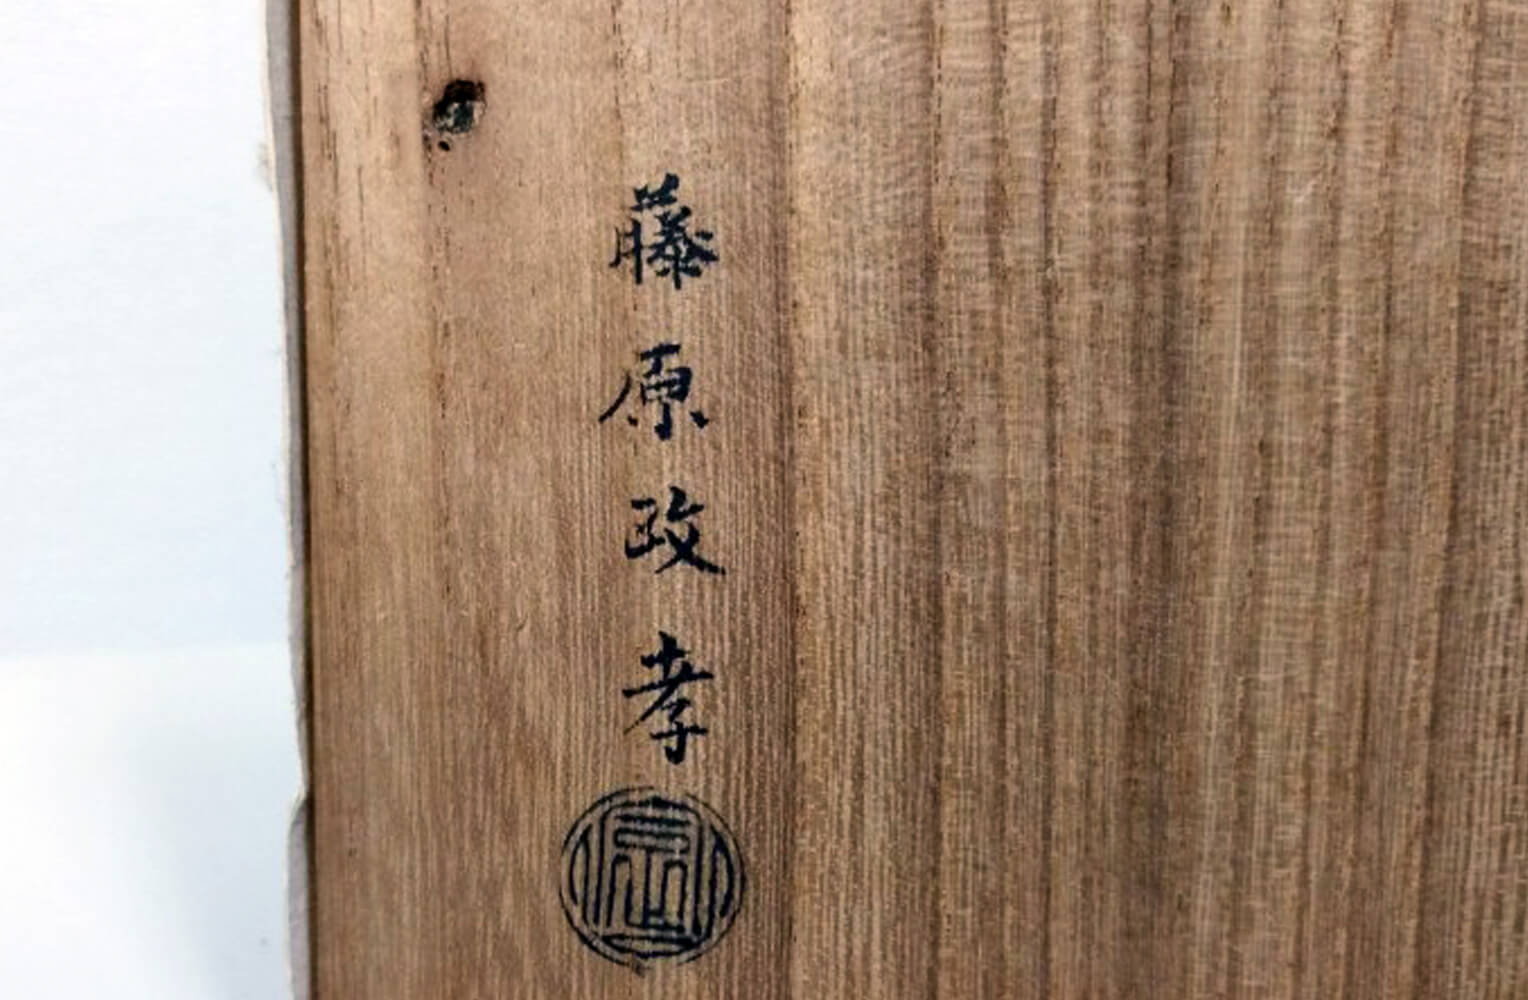 藤原政孝